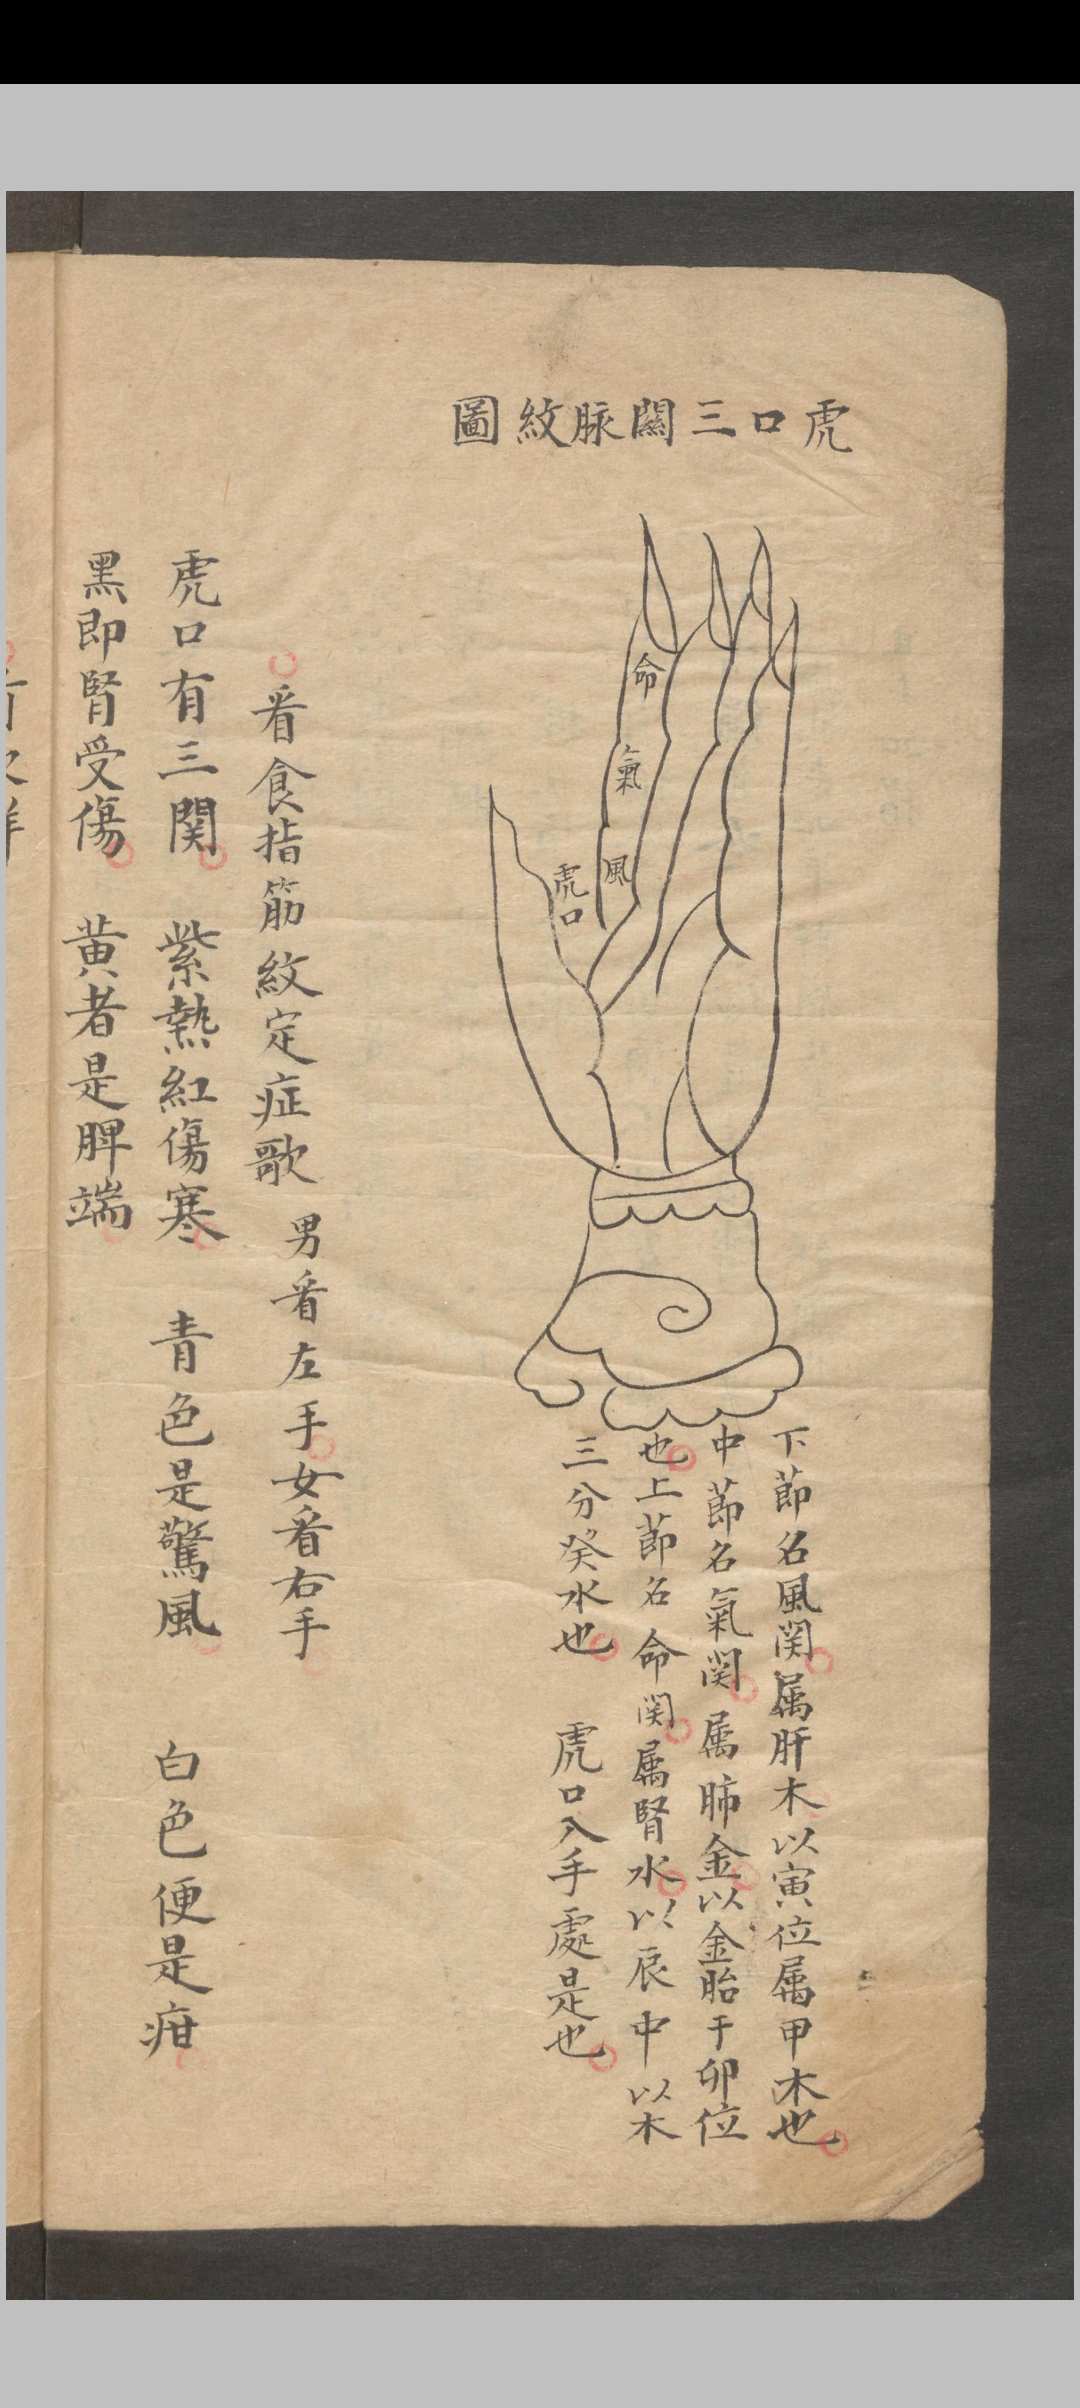 虎口三關脉紋圖
命
氣
風
虎口
下節名風関属肝木以寅位属甲木也
中節名氣関属肺金以金胎于卯位
也上節名命関属腎水以辰中以木
三分癸水也 虎口入手處是也
看食指筋紋定症歌 男看左手女看右手
虎口有三関 紫熱紅傷寒 青色是驚風 白色便是疳
黑即腎受傷 黄者是脾端